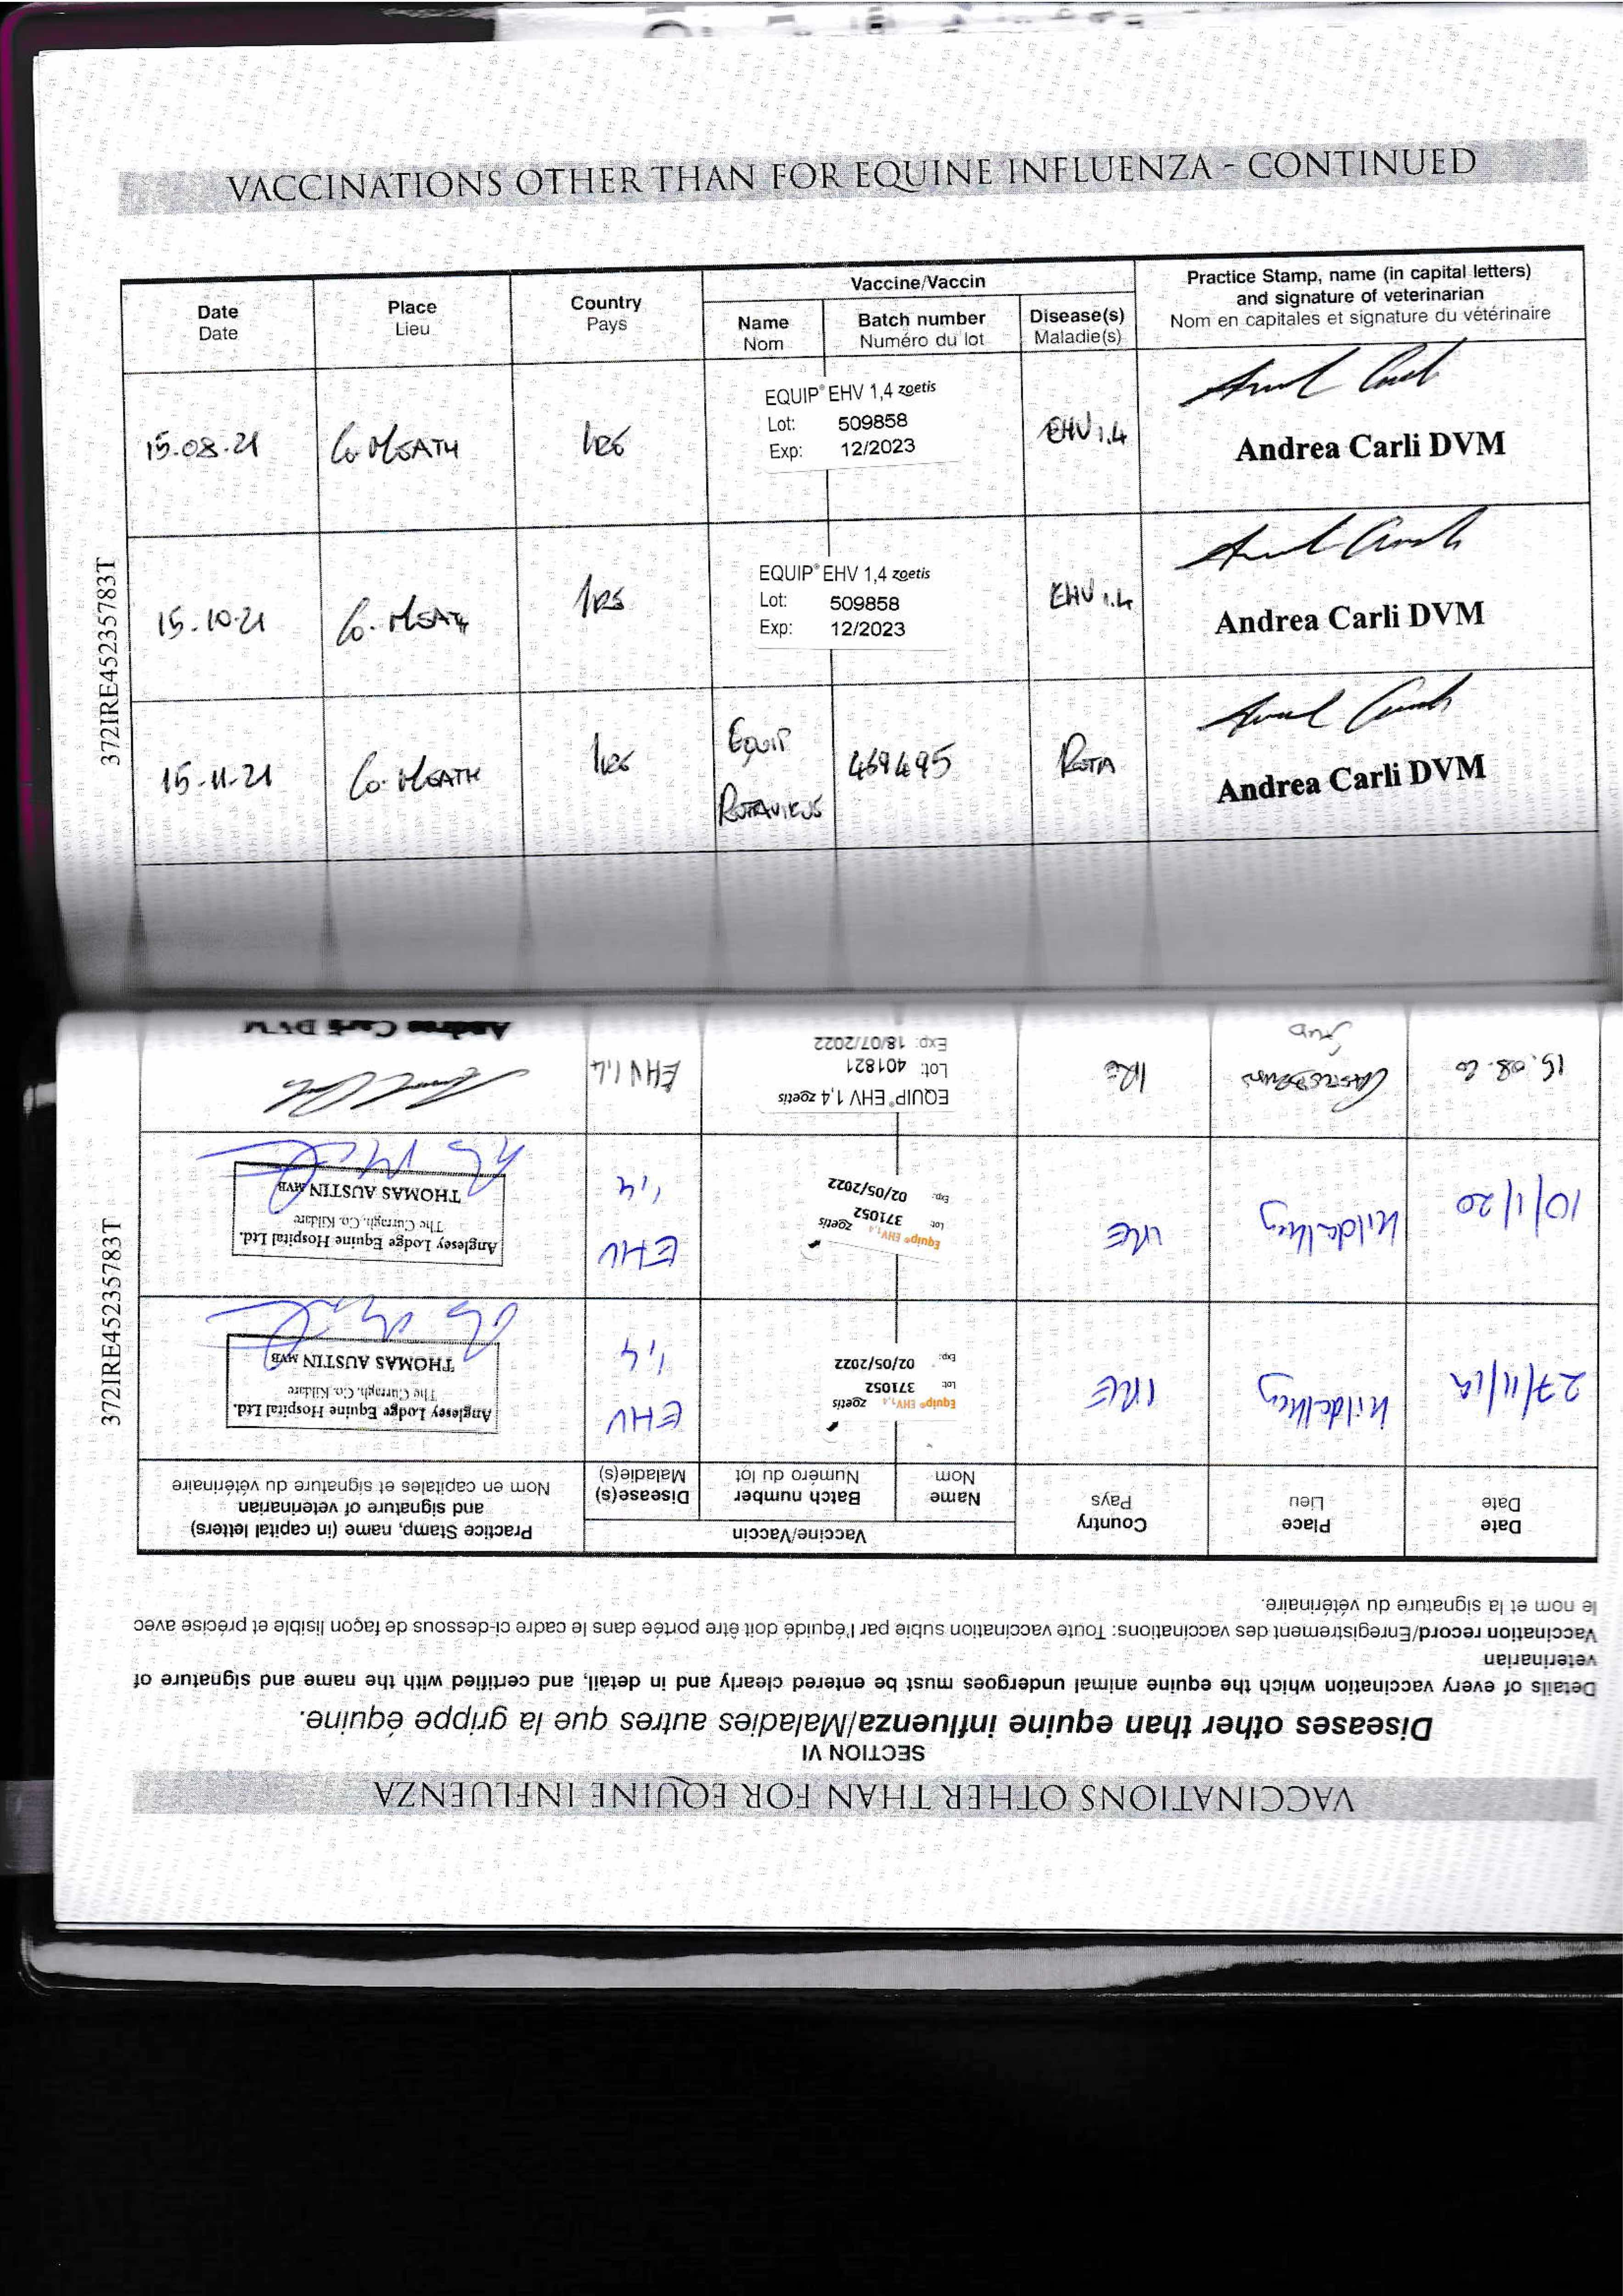 VACCINATIONS OTHER THAN FOR EQUINE INFLUENZA - CONTINUED
Date
Date
Place
Lieu
Country
Pays
Vaccine/Vaccin
Name
Nom
Batch number
Numéro du lot
Disease(s)
Maladie(s)
Practice Stamp, name (in capital letters)
and signature of veterinarian
Nom en capitales et signature du vétérinaire
15.08.21
Co. MEATH
IRE
EQUIP® EHV 1,4 zoetis
Lot: 509858
Exp: 12/2023
EHV 1.4
Andrea Carli DVM
15.10.21
Co. MEATH
IRE
EQUIP® EHV 1,4 zoetis
Lot: 509858
Exp: 12/2023
EHV 1.4
Andrea Carli DVM
15.11.21
Co. MEATH
IRE
EQUIP
ROTAVIRUS
469495
ROTA
Andrea Carli DVM
372IRE45235783T
VACCINATIONS OTHER THAN FOR EQUINE INFLUENZA
SECTION VI
Diseases other than equine influenza/Maladies autres que la grippe équine.
Details of every vaccination which the equine animal undergoes must be entered clearly and in detail, and certified with the name and signature of
veterinarian
Vaccination record/Enregistrement des vaccinations: Toute vaccination subie par l'équidé doit être portée dans le cadre ci-dessous de façon lisible et précise avec
le nom et la signature du vétérinaire.
Date
Date
Place
Lieu
Country
Pays
Vaccine/Vaccin
Name
Nom
Batch number
Numéro du lot
Disease(s)
Maladie(s)
Practice Stamp, name (in capital letters)
and signature of veterinarian
Nom en capitales et signature du vétérinaire
27/11/19
Kildalkey
IRE
Equip® EHV1,4 zoetis
Lot: 371052
Exp: 02/05/2022
EHV
1,4
Anglesey Lodge Equine Hospital Ltd.
The Curragh, Co. Kildare
THOMAS AUSTIN MVB
10/1/20
Kildalkey
IRE
Equip® EHV1,4 zoetis
Lot: 371052
Exp: 02/05/2022
EHV
1,4
Anglesey Lodge Equine Hospital Ltd.
The Curragh, Co. Kildare
THOMAS AUSTIN MVB
15.08.20
STUD
IRE
EQUIP® EHV 1,4 zoetis
Lot: 401821
Exp: 18/07/2022
EHV 1.4
Andrea Carli DVM
372IRE45235783T